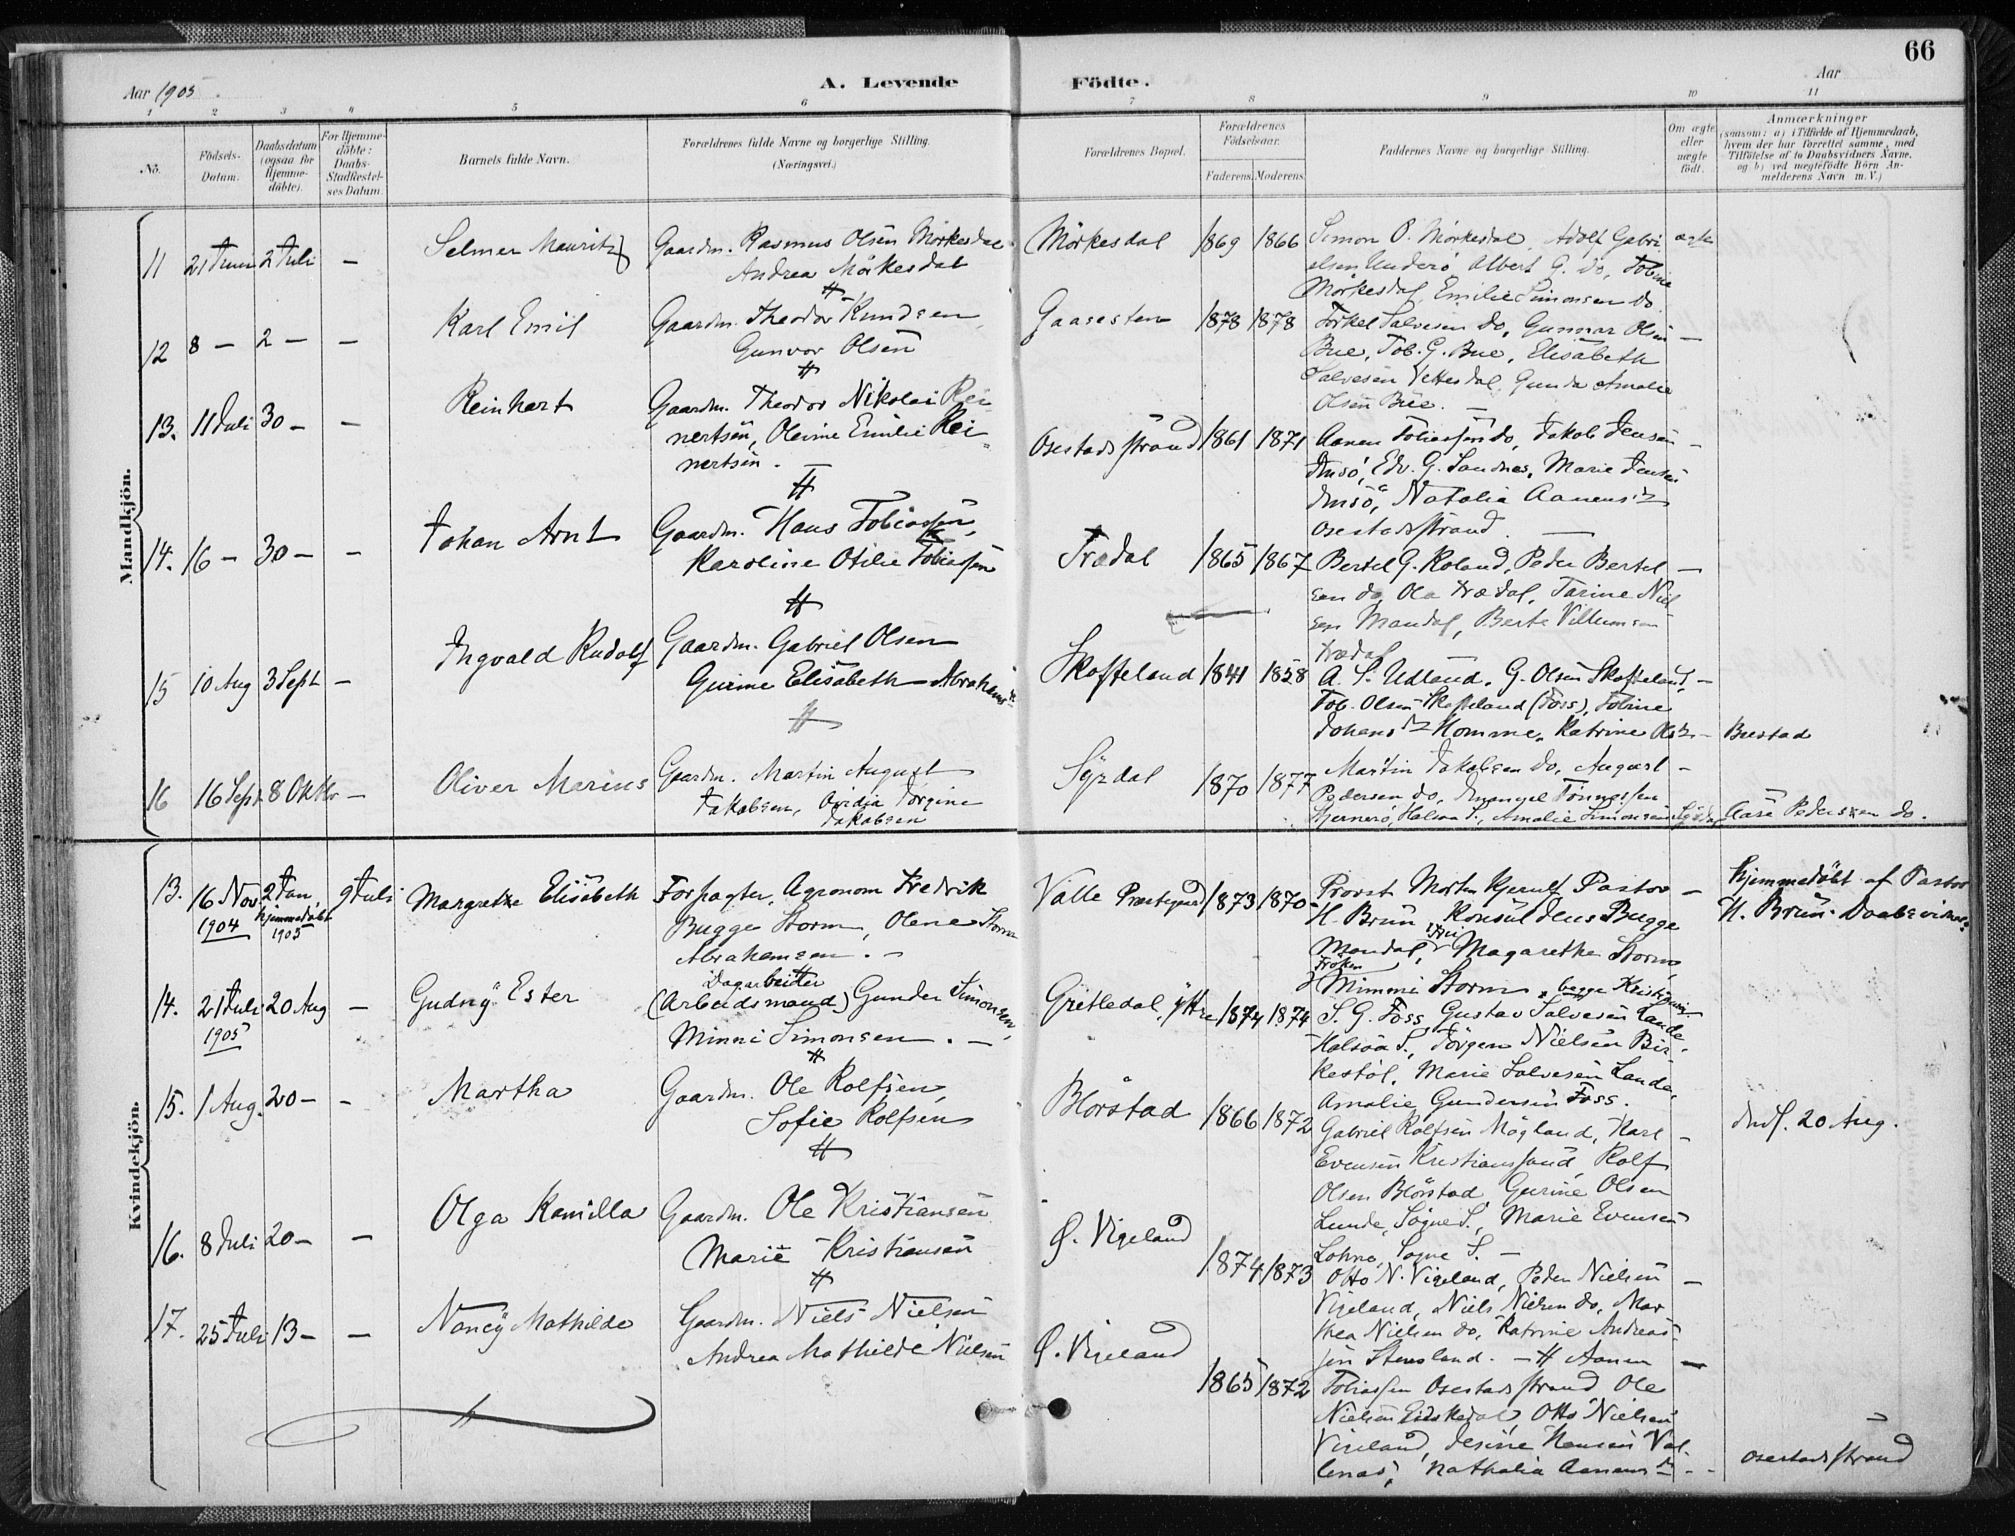 66
Aar 1905.
A. Levende Födte.
Aar
1 2 3 4 5 6 7 8 9 10 11
No.
Födsels-Datum.
Daabsdatum (ogsaa for Hjemmedöbte).
For Hjemmedöbte: Daabs-Stadfæstelses Datum.
Barnets fulde Navn.
Forældrenes fulde Navne og borgerlige Stilling.
(Næringsvei.)
Forældrenes Bopæl.
Forældrenes Födselsaar.
Faderens. Moderens.
Faddernes Navne og borgerlige Stilling.
Om ægte eller uægte födt.
Anmærkninger
(saasom: a) i Tilfælde af Hjemmedaab,
hvem der har forrettet samme, med
Tilföielse af to Daabsvidners Navne,
og b) ved uægtefödte Börn An-
melderens Navn m. V.)
Mandkjön.
11 21 Juni 2 Juli — Selmer Mauritz
Gaardm. Rasmus Olsen Mörkesdal
Andrea Mörkesdal
Mörkesdal 1869 1866
Simon O. Mörkesdal, Adolf Gabri- ægte
elsen Underö, Albert G. do, Tobine
Mörkesdal, Emilie Simonsen do
12 8 — 2 — — Karl Emil
Gaardm. Theodor Knudsen,
Gunvor Olsen
Gaasesten 1878 1878
Torkel Salvesen do, Gunnar Olsen —
Bue, Tob. G. Bue, Elisabeth
Salvesen Vettesdal, Gunda Amalie
Olsen Bue. —
13. 11 Juli 30 — — Reinhart
Gaardm. Theodor Nikolai Rei-
nertsen, Olevine Emilie Rei-
nertsen. —
Osestadstrand 1861 1871
Aanen Tobiassen do, Jakob Jensen —
Imsö, Edv. G. Sandnes, Marie Jensen
Imsö, Natalia Aanensdr
Osestadstrand. —
14. 16 — 30 — — Johan Arnt
Gaardm. Hans Tobiassen,
Karoline Otilie Tobiassen
Trædal 1865 1867
Bertel G. Roland, Peder Bertel- —
sen do, Ola Trædal, Tarine Niel-
sen Mandal, Berte Villumsen
Trædal
15 10 Aug 3 Sept — Ingvald Rudolf
Gaardm. Gabriel Olsen
Gurine Elisabeth Abrahamsdr
Skofteland 1841 1858
A. S. Udland, G. Olsen Skofteland, —
Tob. Olsen Skofteland (Foss), Tobine
Johansdr Homme, Katrine Olsdr — Buestad
16 16 Sept 8 Oktbr — Oliver Marius
Gaardm. Martin August
Jakobsen, Ovidia Jorgine
Jakobsen
Syrdal 1870 1877
Martin Jakobsen do, August —
Pedersen do, Emanuel Tönnessen
Hjernerö, Halsaa S., Amalie Simonsen Syrdal, Aase Pedersen do.
Kvindekjön.
13. 16 Nov 1904 2 Jan. hjemmedöbt 1905 9 Juli Margrethe Elisabeth
Forpagter, Agronom Fredrik
Bugge Storm, Olene Storm
Abrahamsen. —
Valle Præstegaard 1873 1870
Provst Morten Kjerulf, Pastor —
H. Brun, Konsul Jens Bugge
Mandal, Frk. Magarethe Storm,
Fröken
Mimmi Storm, begge Kristiania.
Hjemmedöbt af Pastor
H. Brun. Daabsvidner:
14. 21 Juli 1905 20 Aug — Gudny Ester
Dagarbeider
(Arbeidsmand) Gunder Simonsen,
Minni Simonsen. —
Grisledal, ytre 1874 1874
S. G. Foss, Gustav Salvesen Lande,
Halsaa S., Jörgen Nielsen Bir-
kestöl, Marie Salvesen Lande,
Amalie Gundersen Foss.
15. 1 Aug. 20 — — Martha
Gaardm. Ole Rolfsen,
Sofie Rolfsen
Blörstad 1866 1872
Gabriel Rolfsen Mögland, Karl —
Evensen Kristianssand, Rolf
Olsen Blörstad, Gurine Olsen
Lunde, Sögne S., Marie Evensen
Lohne, Sogne S. —
Indf. 20 Aug.
16. 8 Juli 20 — — Olga Kamilla
Gaardm. Ole Kristiansen
Marie Kristiansen
Ö. Vigeland 1874 1873
Otto N. Vigeland, Peder Nielsen —
Vigeland, Niels Nielsen do, Mar-
thea Nielsen do, Katrine Andreas-
sen Stensland. —
17. 25 Juli 13 — — Nancÿ Mathilde
Gaardm. Niels Nielsen
Andrea Mathilde Nielsen
Ö. Vigeland 1865 1872
Aanen —
Tobiassen Osestadstrand, Ole
Nielsen Eidskedal, Otto Nielsen
Vigeland, Jesine Hansen Val-
lenes, Nathalia Aanensdr — Osestadstrand